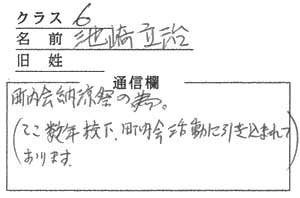 クラス 6
名前 池崎立治
旧姓
通信欄
町内会納涼祭の為。
(ここ数年校下、町内会活動に引き込まれて
おります。)